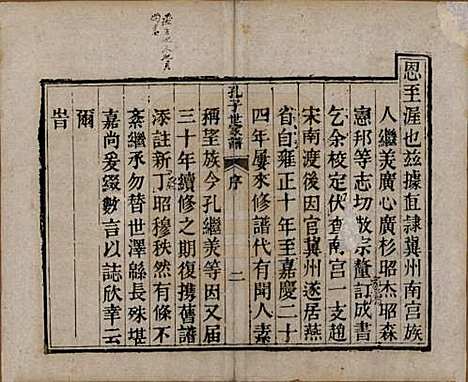 恩王渥也茲據直隸冀州南宮族
人繼美廣心廣杉昭杰昭森
憲邦等志切敬宗釐訂成書
乞余校定伏查南宮一支趙
宋南渡後因官冀州遂居燕
省自雍正十年至嘉慶二十
四年屢來修譜代有聞人素
孔子世家譜 序 二
稱望族今孔繼美等因又屆
三十年續修之期復攜舊譜
添註新丁昭穆秩然有條不
紊繼承勿替世澤緜長殊堪
嘉尚爰綴數言以誌欣幸云
爾
旹